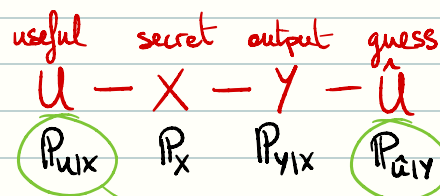 useful secret output guess
U — X — Y — Û
P_{U|X} P_X P_{Y|X} P_{Û|Y}